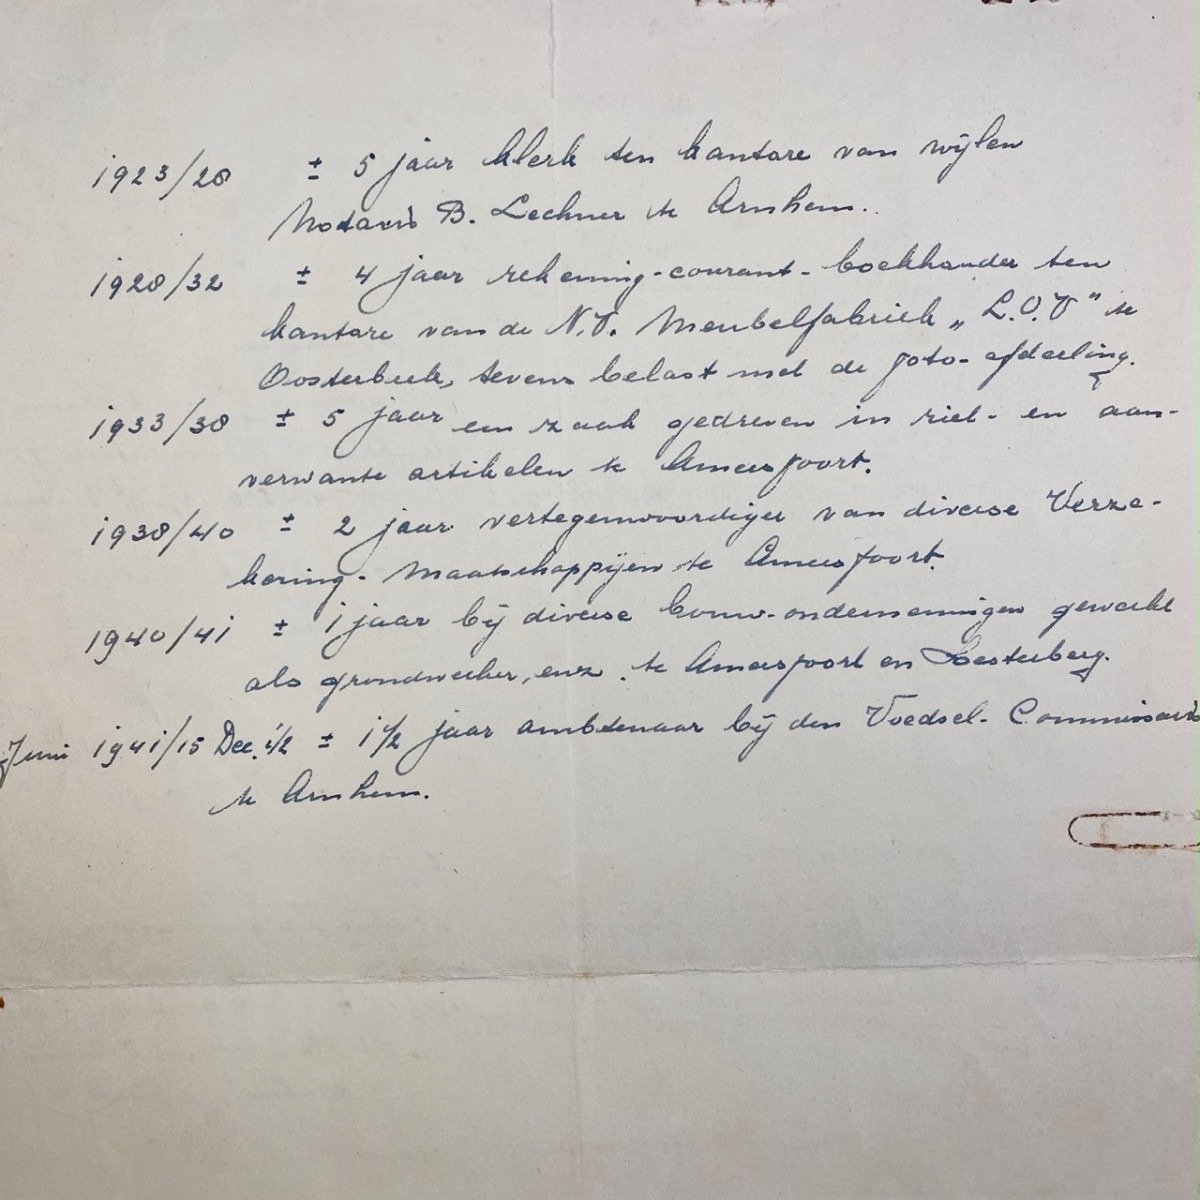 1923/28 ± 5 jaar klerk ten kantore van wijlen
Notaris B. Lechner te Arnhem.
1928/32 ± 4 jaar rekening-courant-boekhouder ten
kantore van de N.V. Meubelfabriek „L.O.V" te
Oosterbeek, tevens belast met de foto-afdeeling.
1933/38 ± 5 jaar een zaak gedreven in riet- en aan-
verwante artikelen te Amersfoort.
1938/40 ± 2 jaar vertegenwoordiger van diverse Verze-
kering-Maatschappijen te Amersfoort.
1940/41 ± 1 jaar bij diverse bouw-ondernemingen gewerkt
als grondwerker, enz. te Amersfoort en Soesterberg.
Juni 1941/15 Dec. ½ ± 1½ jaar ambtenaar bij den Voedsel-Commissaris
te Arnhem.